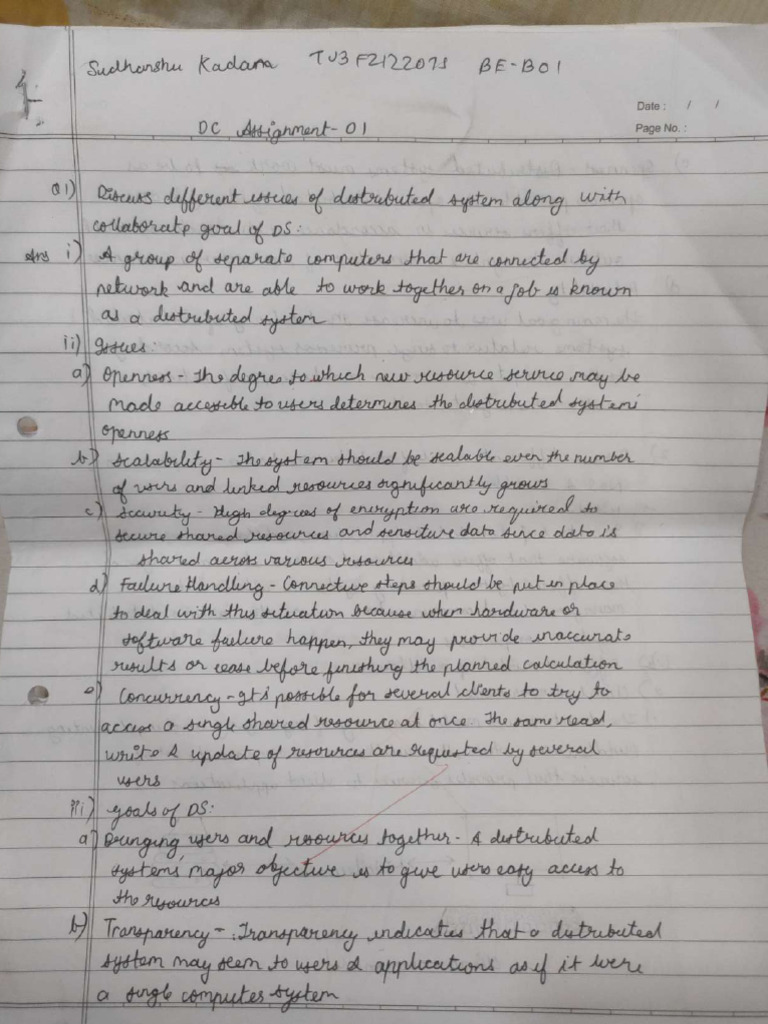 Sudhanshu Kadam TU3F2122075 BE-B01
Date : / /
Page No. :
DC Assignment-01
Q1) Discuss different issues of distributed system along with
collaborate goal of DS:
Ans i) A group of separate computers that are connected by
network and are able to work together on a job is known
as a distributed system
ii) Issues:
a) Openness - The degree to which new resource service may be
made accessible to users determines the distributed systems'
openness
b) Scalability - The system should be scalable even the number
of users and linked resources significantly grows
c) Security - High degrees of encryption are required to
secure shared resources and sensitive data since data is
shared across various resources
d) Failure Handling - Connective steps should be put in place
to deal with this situation because when hardware or
software failure happen, they may provide inaccurate
results or cease before finishing the planned calculation
e) Concurrency - It's possible for several clients to try to
access a single shared resource at once. The same read,
write & update of resources are requested by several
users
iii) goals of DS:
a) Bringing users and resources together - A distributed
systems' major objective is to give users easy access to
the resources
b) Transparency - Transparency indicaties that a distributed
system may seem to users & applications as if it were
a single computer system